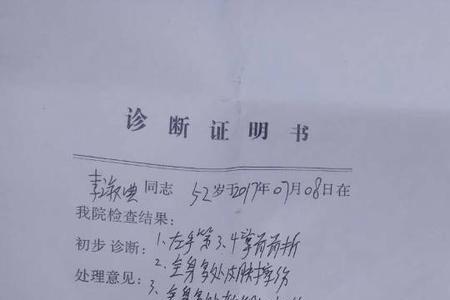 诊断证明书
李淑典 同志 52岁于2017年07月08日在
我院检查结果:
初步诊断: 1、左手第3、4掌骨骨折
处理意见: 2、全身多处皮肤擦伤
3、全身多处